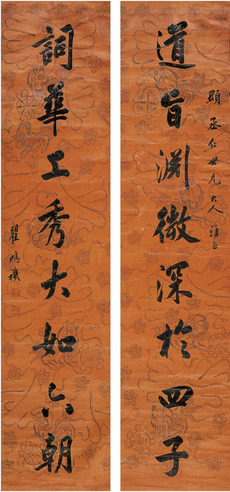 道旨渊微深於四子
顯丞仁世兄大人雅正
詞華工秀大如六朝
瞿鴻禨